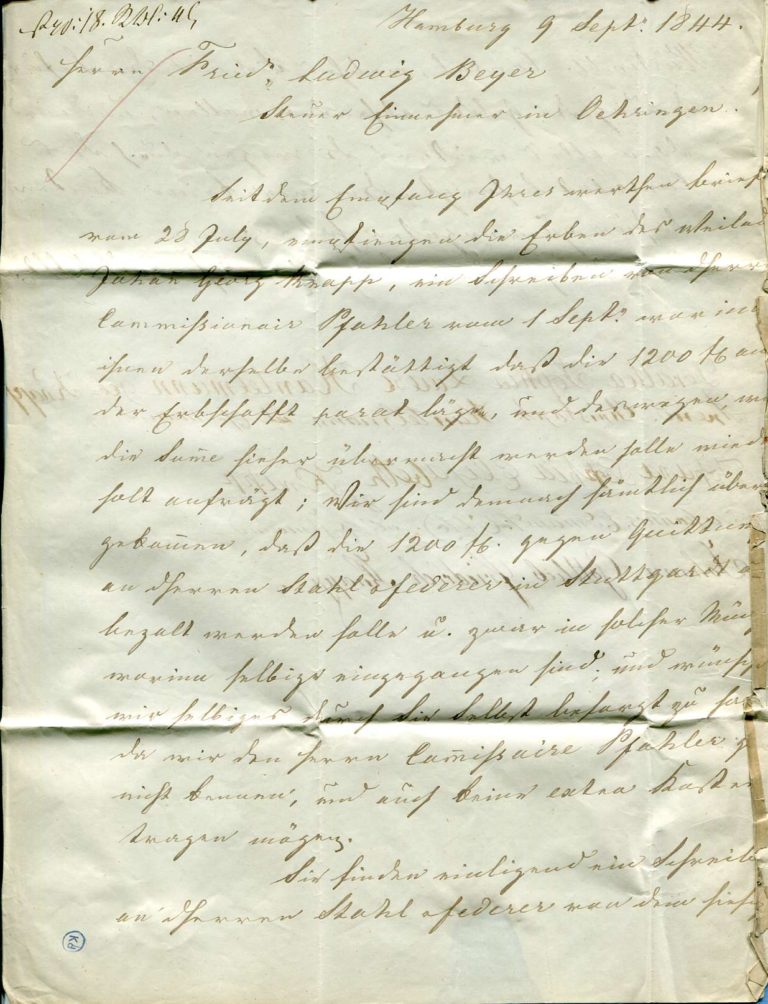 Hamburg 9 Sept. 1844.
Herrn Fried. Ludwig Beyer
Steuer Einnehmer in Oehringen.
Seit dem Empfang Ihres werthen Brief
vom 28 July, empfiengen die Erben des Weilad
Johan Georg Knapp, ein Schreiben von dHerr
Commissionair Pfahler vom 1 Sept. worin
ihnen derselbe bestättigt daß die 1200 f an
der Erbschafft parat läge, und deswegen
die Sum̄e hieher übermacht werden solle wied
holt anfrägt; Wir sind demnach sämtlich über
gekom̄en, daß die 1200 f. gegen Quittun
an dHerren Stahl & Federer in Stuttgardt
bezalt werden solle u. zwar in solcher Mün
worinn selbige eingegangen sind; und wünsch
wir selbiges durch Sie Selbst besorgt zu ha
da wir den Herrn Com̄issaire Pfahler
nicht kennen, und auch keine extra Koste
tragen mögen.
Sie finden einligend ein Schreib
an dHerren Stahl & Federer von dem hies